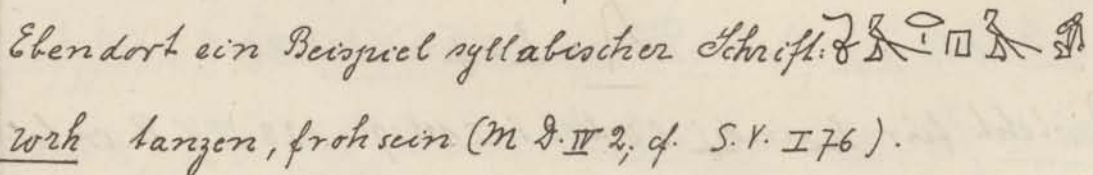 Ebendort ein Beispiel syllabischer Schrift:
wrh tanzen, froh sein (M D. IV 2, cf. S.V. I 76).